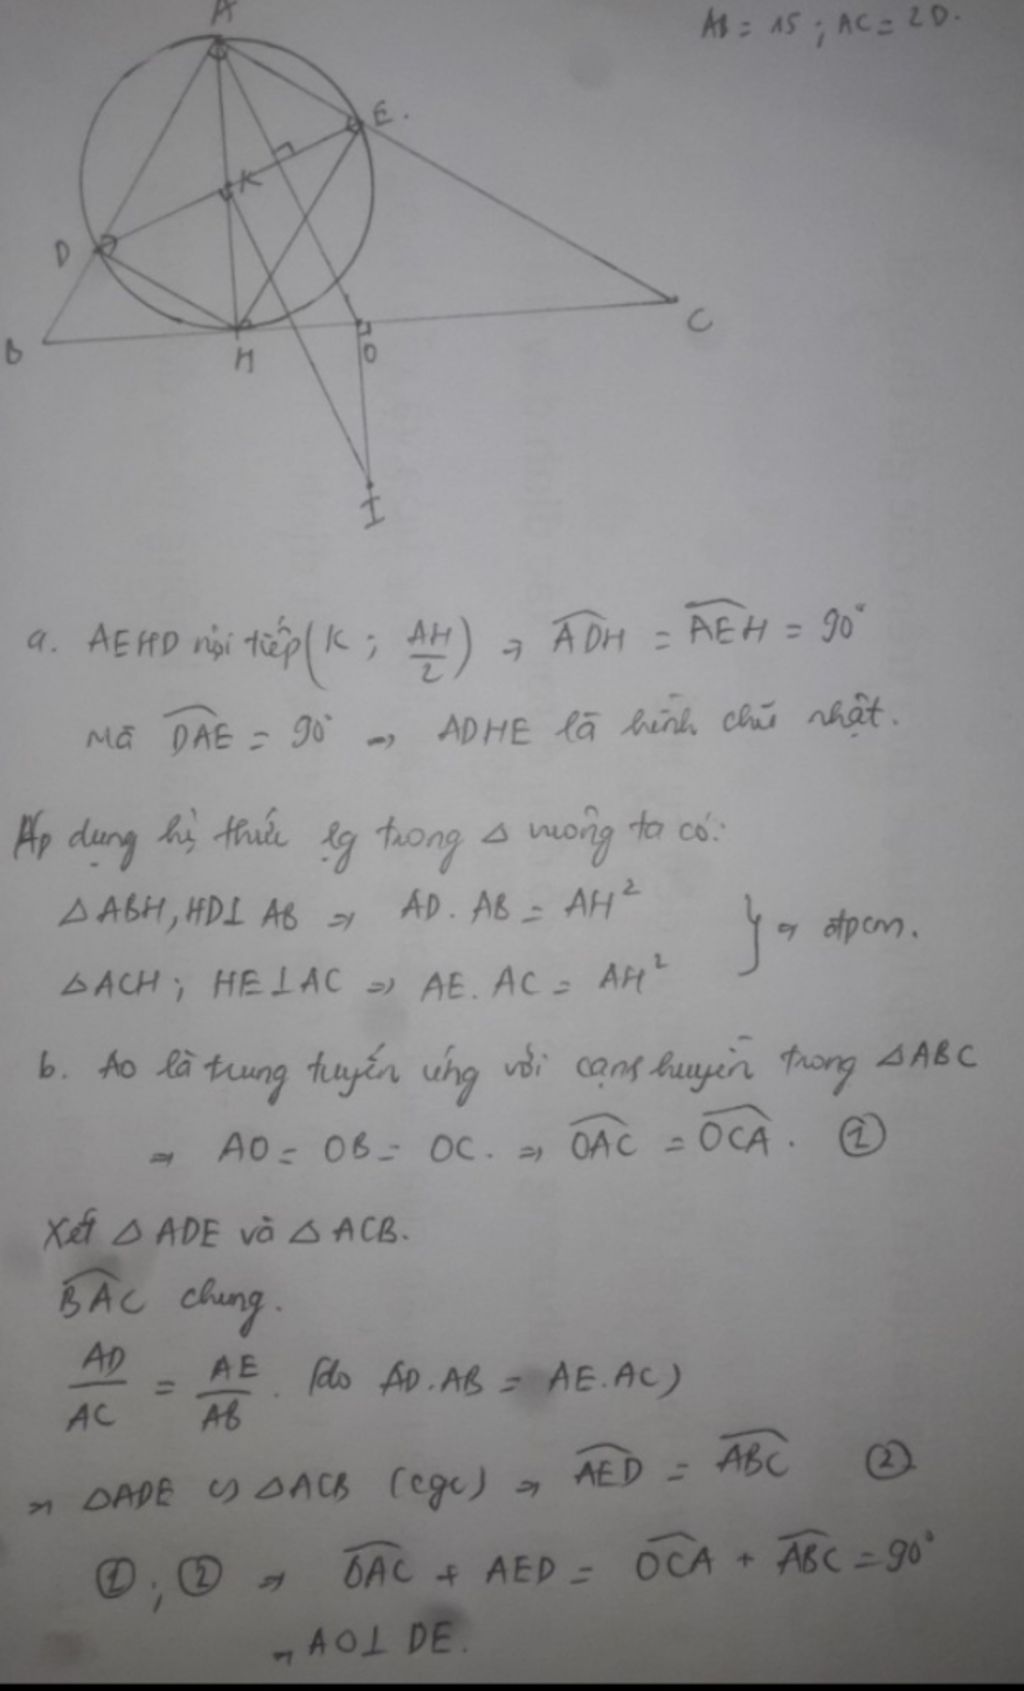 A
AB = 15 ; AC = 20.
E.
K
D
C
B
H
O
I
a. AEHD nội tiếp (K ; AH/2) → ADH = AEH = 90°
Mà DAE = 90° → ADHE là hình chữ nhật.
Áp dụng hệ thức lg trong △ vuông ta có:
△ABH, HD⊥AB ⇒ AD. AB = AH²
△ACH ; HE⊥AC ⇒ AE. AC = AH²
} ⇒ đpcm.
b. AO là trung tuyến ứng với cạnh huyền trong △ABC
⇒ AO = OB = OC. ⇒ OAC = OCA. ①
Xét △ADE và △ACB.
BAC chung.
AD/AC = AE/AB . (do AD.AB = AE.AC)
⇒ △ADE ∽ △ACB (cgc) ⇒ AED = ABC ②
① ; ② ⇒ OAC + AED = OCA + ABC = 90°
⇒ AO⊥DE.